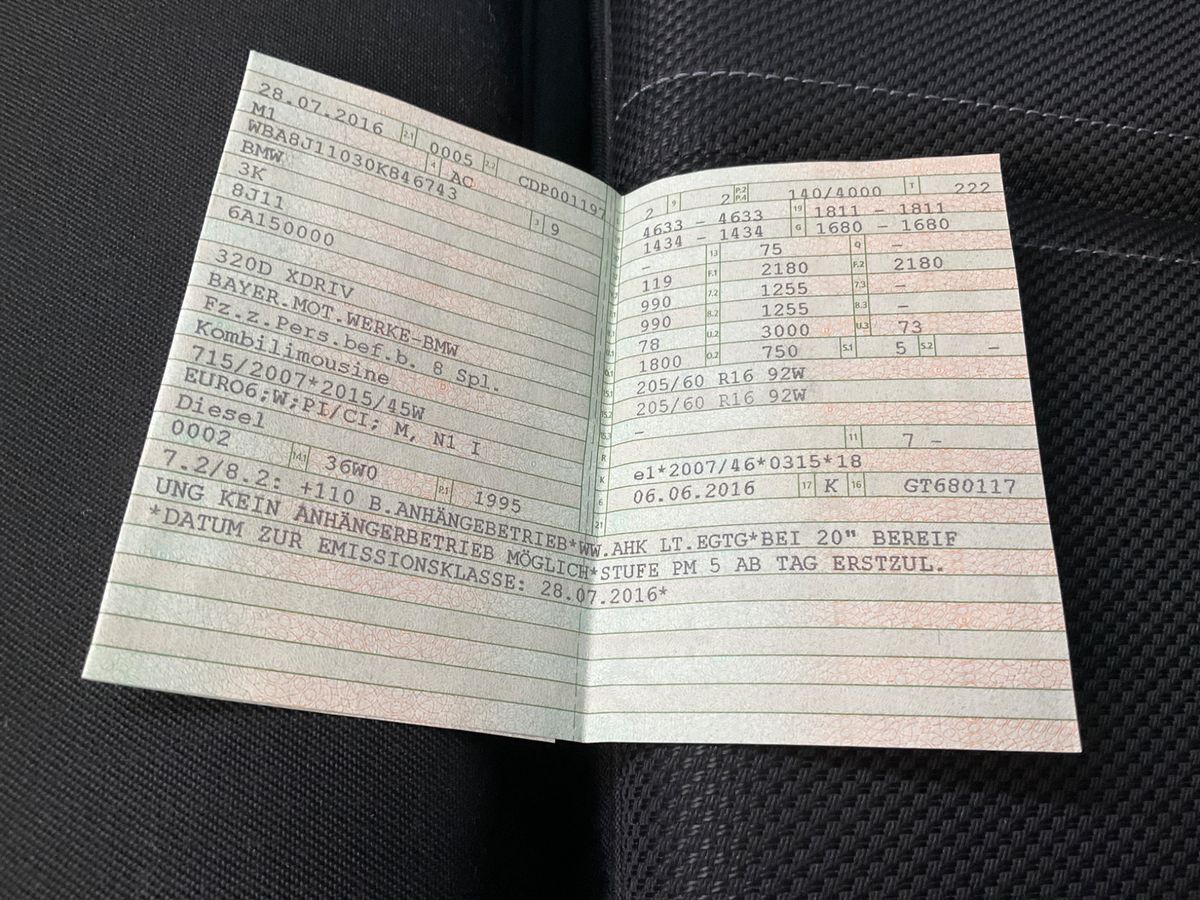 28.07.2016 2.1 0005 2.2 CDP001197
M1 4 AC
WBA8J11030K846743 3 9
BMW
3K
8J11
6A150000
320D XDRIV
BAYER.MOT.WERKE-BMW
Fz.z.Pers.bef.b. 8 Spl.
Kombilimousine
715/2007*2015/45W
EURO6;W;PI/CI; M, N1 I
Diesel
0002 14.1 36W0 P.1 1995
2 9 2 P.2 P.4 140/4000 T 222
4633 - 4633 19 1811 - 1811
1434 - 1434 G 1680 - 1680
- 13 75 Q -
119 F.1 2180 F.2 2180
990 7.2 1255 7.3 -
990 8.2 1255 8.3 -
78 U.2 3000 U.3 73
1800 O.2 750 S.1 5 S.2 -
15.1 205/60 R16 92W
15.2 205/60 R16 92W
15.3 -
R 11 7 -
K e1*2007/46*0315*18
6 06.06.2016 17 K 16 GT680117
21
7.2/8.2: +110 B.ANHÄNGEBETRIEB*WW.AHK LT.EGTG*BEI 20" BEREIF
UNG KEIN ANHÄNGERBETRIEB MÖGLICH*STUFE PM 5 AB TAG ERSTZUL.
*DATUM ZUR EMISSIONSKLASSE: 28.07.2016*